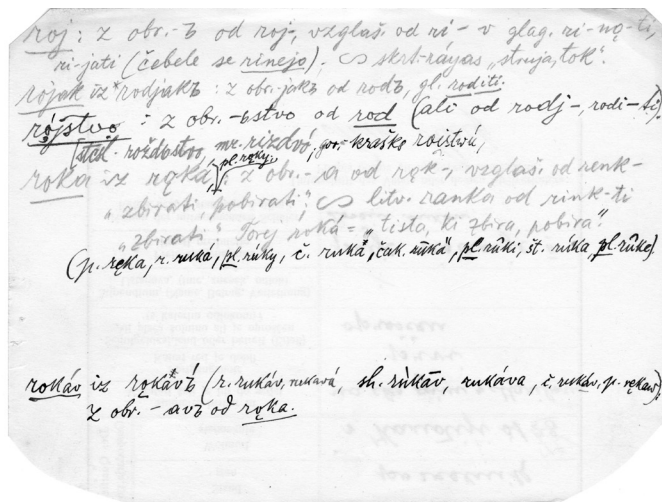 roj: z obr. -ъ od roj-, vzglaš. od ri- v glag. ri-nǫ-ti,
ri-jati (čebele se rinejo). ∽ skrt. ráyas „struja, tok".
rojak iz *rodjakъ: z obr. jakъ od rodъ, gl. roditi.
rọ́jstvọ: z obr. -ьstvo od rod (ali od rodj-, rodi-ti)
(stcsl. roždьstvo, mr. rizdvó, gor.-kraško roistvú,
roka iz rǫka, pl. rǫky: z obr. -a od rǫk-, vzglaš. od renk-
„zbirati, pobirati"; ∽ litv. ranka od rink-ti
„zbirati". Torej roká = „tista, ki zbira, pobira".
(p. ręka, r. ruká, pl. rúky, č. ruka, čak. rūkȁ, pl. rûki, št. rúka, pl. rûke).
rokáv iz rǫkávъ (r. rukáv, rukavá, sh. rùkāv, rukáva, č. rukáv, p. rękaw),
z obr. -avъ od rǫka.